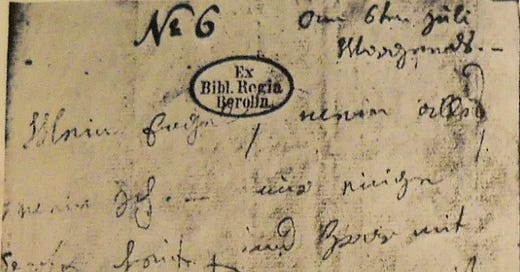 No 6
am 6ten Juli
Morgends. —
Ex
Bibl. Regia
Berolin.
Mein Engel, mein alles
mein Ich. — nur einige
und zwar mit